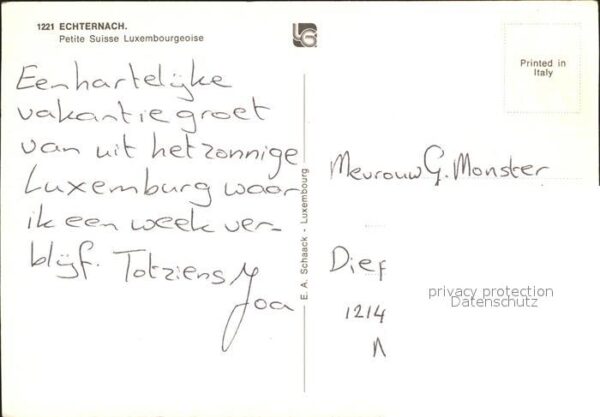 1221 ECHTERNACH.
Petite Suisse Luxembourgeoise
LG
Printed in
Italy
Een hartelijke
vakantie groet
van uit het zonnige
Luxemburg waar
ik een week ver-
blijf. Tot ziens
Joa
E. A. Schaack - Luxembourg
Mevrouw G. Monster
Dief
1214
privacy protection
Datenschutz